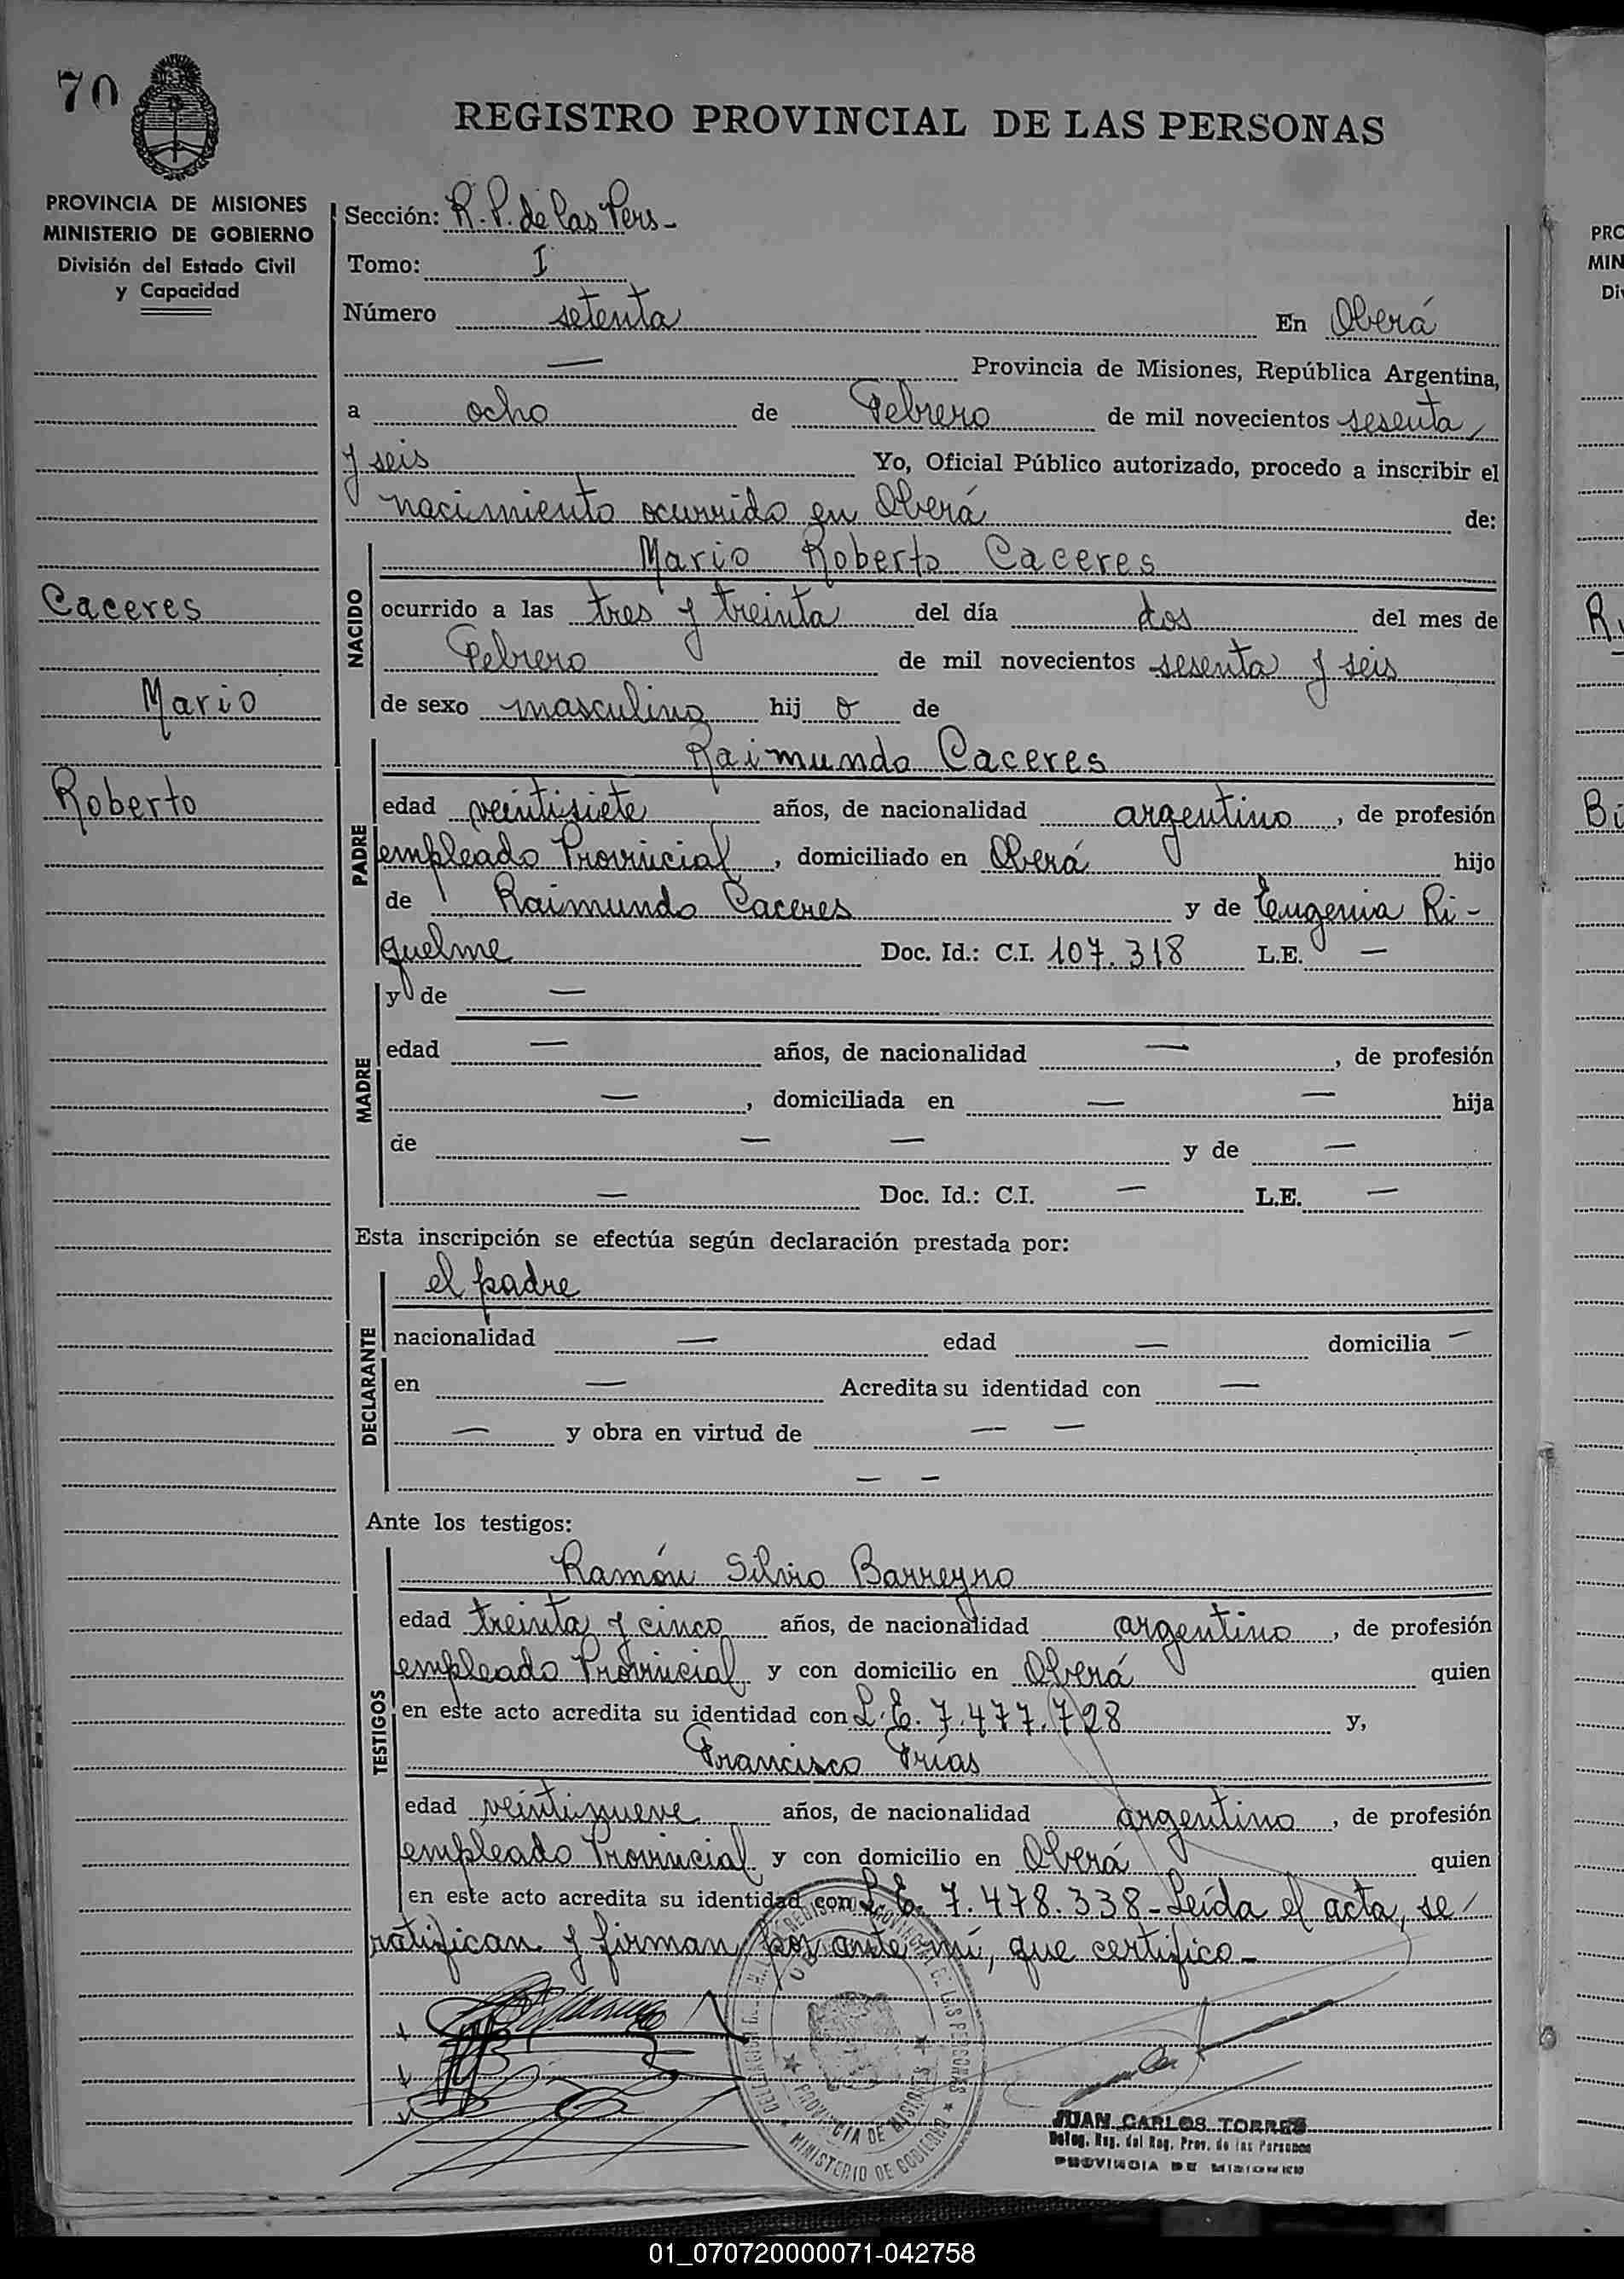 70
REGISTRO PROVINCIAL DE LAS PERSONAS
PROVINCIA DE MISIONES
MINISTERIO DE GOBIERNO
División del Estado Civil
y Capacidad
Sección: R. P. de las Pers-
Tomo: I
Número setenta En Oberá
— Provincia de Misiones, República Argentina,
a ocho de Febrero de mil novecientos sesenta
y seis Yo, Oficial Público autorizado, procedo a inscribir el
nacimiento ocurrido en Oberá de:
Caceres
Mario
Roberto
NACIDO
Mario Roberto Caceres
ocurrido a las tres y treinta del día dos del mes de
Febrero de mil novecientos sesenta y seis
de sexo masculino hij o de
PADRE
Raimundo Caceres
edad veintisiete años, de nacionalidad argentino, de profesión
empleado Provincial, domiciliado en Oberá hijo
de Raimundo Caceres y de Eugenia Ri-
quelme Doc. Id.: C.I. 107.318 L.E. —
MADRE
y de —
edad — años, de nacionalidad —, de profesión
—, domiciliada en — — hija
de — — y de —
— Doc. Id.: C.I. — L.E. —
Esta inscripción se efectúa según declaración prestada por:
DECLARANTE
el padre
nacionalidad — edad — domicilia —
en — Acredita su identidad con —
— y obra en virtud de — —
— —
Ante los testigos:
TESTIGOS
Ramón Silvio Barreyro
edad treinta y cinco años, de nacionalidad argentino, de profesión
empleado Provincial y con domicilio en Oberá quien
en este acto acredita su identidad con L.E. 7.477.728 y,
Francisco Frías
edad veintinueve años, de nacionalidad argentino, de profesión
empleado Provincial y con domicilio en Oberá quien
en este acto acredita su identidad con L.E. 7.478.338-Leída el acta, se
ratifican y firman por ante mí, que certifico-
REGISTRO PROVINCIAL DE LAS PERSONAS
PROVINCIA DE MISIONES
MINISTERIO DE GOBIERNO
JUAN CARLOS TORRES
Deleg. Reg. del Reg. Prov. de las Personas
PROVINCIA DE MISIONES
PRO
MIN
Di
R
Bi
01_070720000071-042758